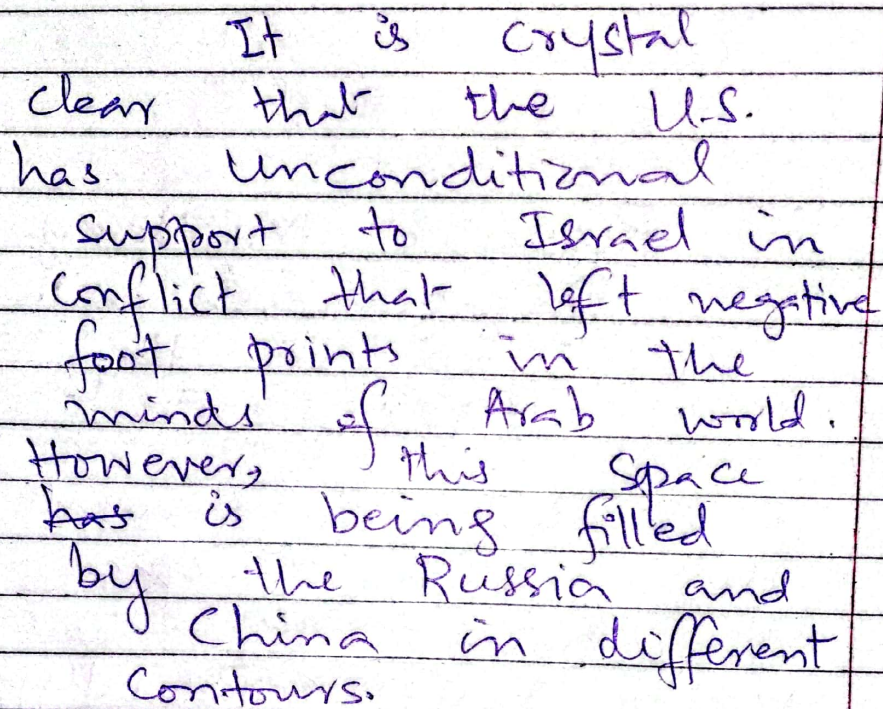 It is crystal
clear that the U.S.
has unconditional
support to Israel in
conflict that left negative
foot prints in the
minds of Arab world.
However, this space
has is being filled
by the Russia and
China in different
contours.